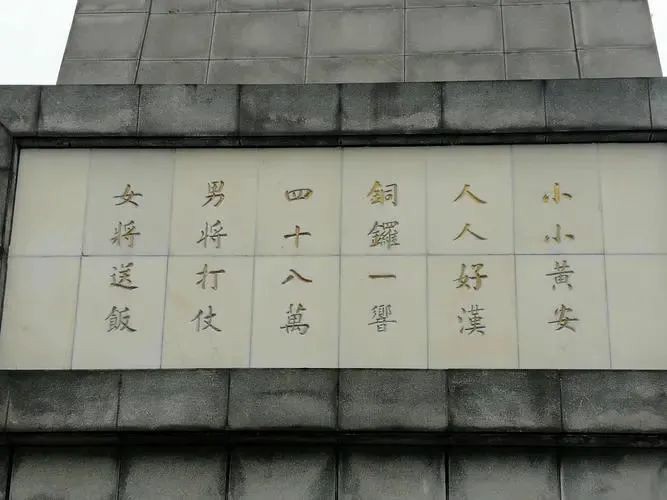 小小黃安
人人好漢
銅鑼一響
四十八萬
男將打仗
女將送飯